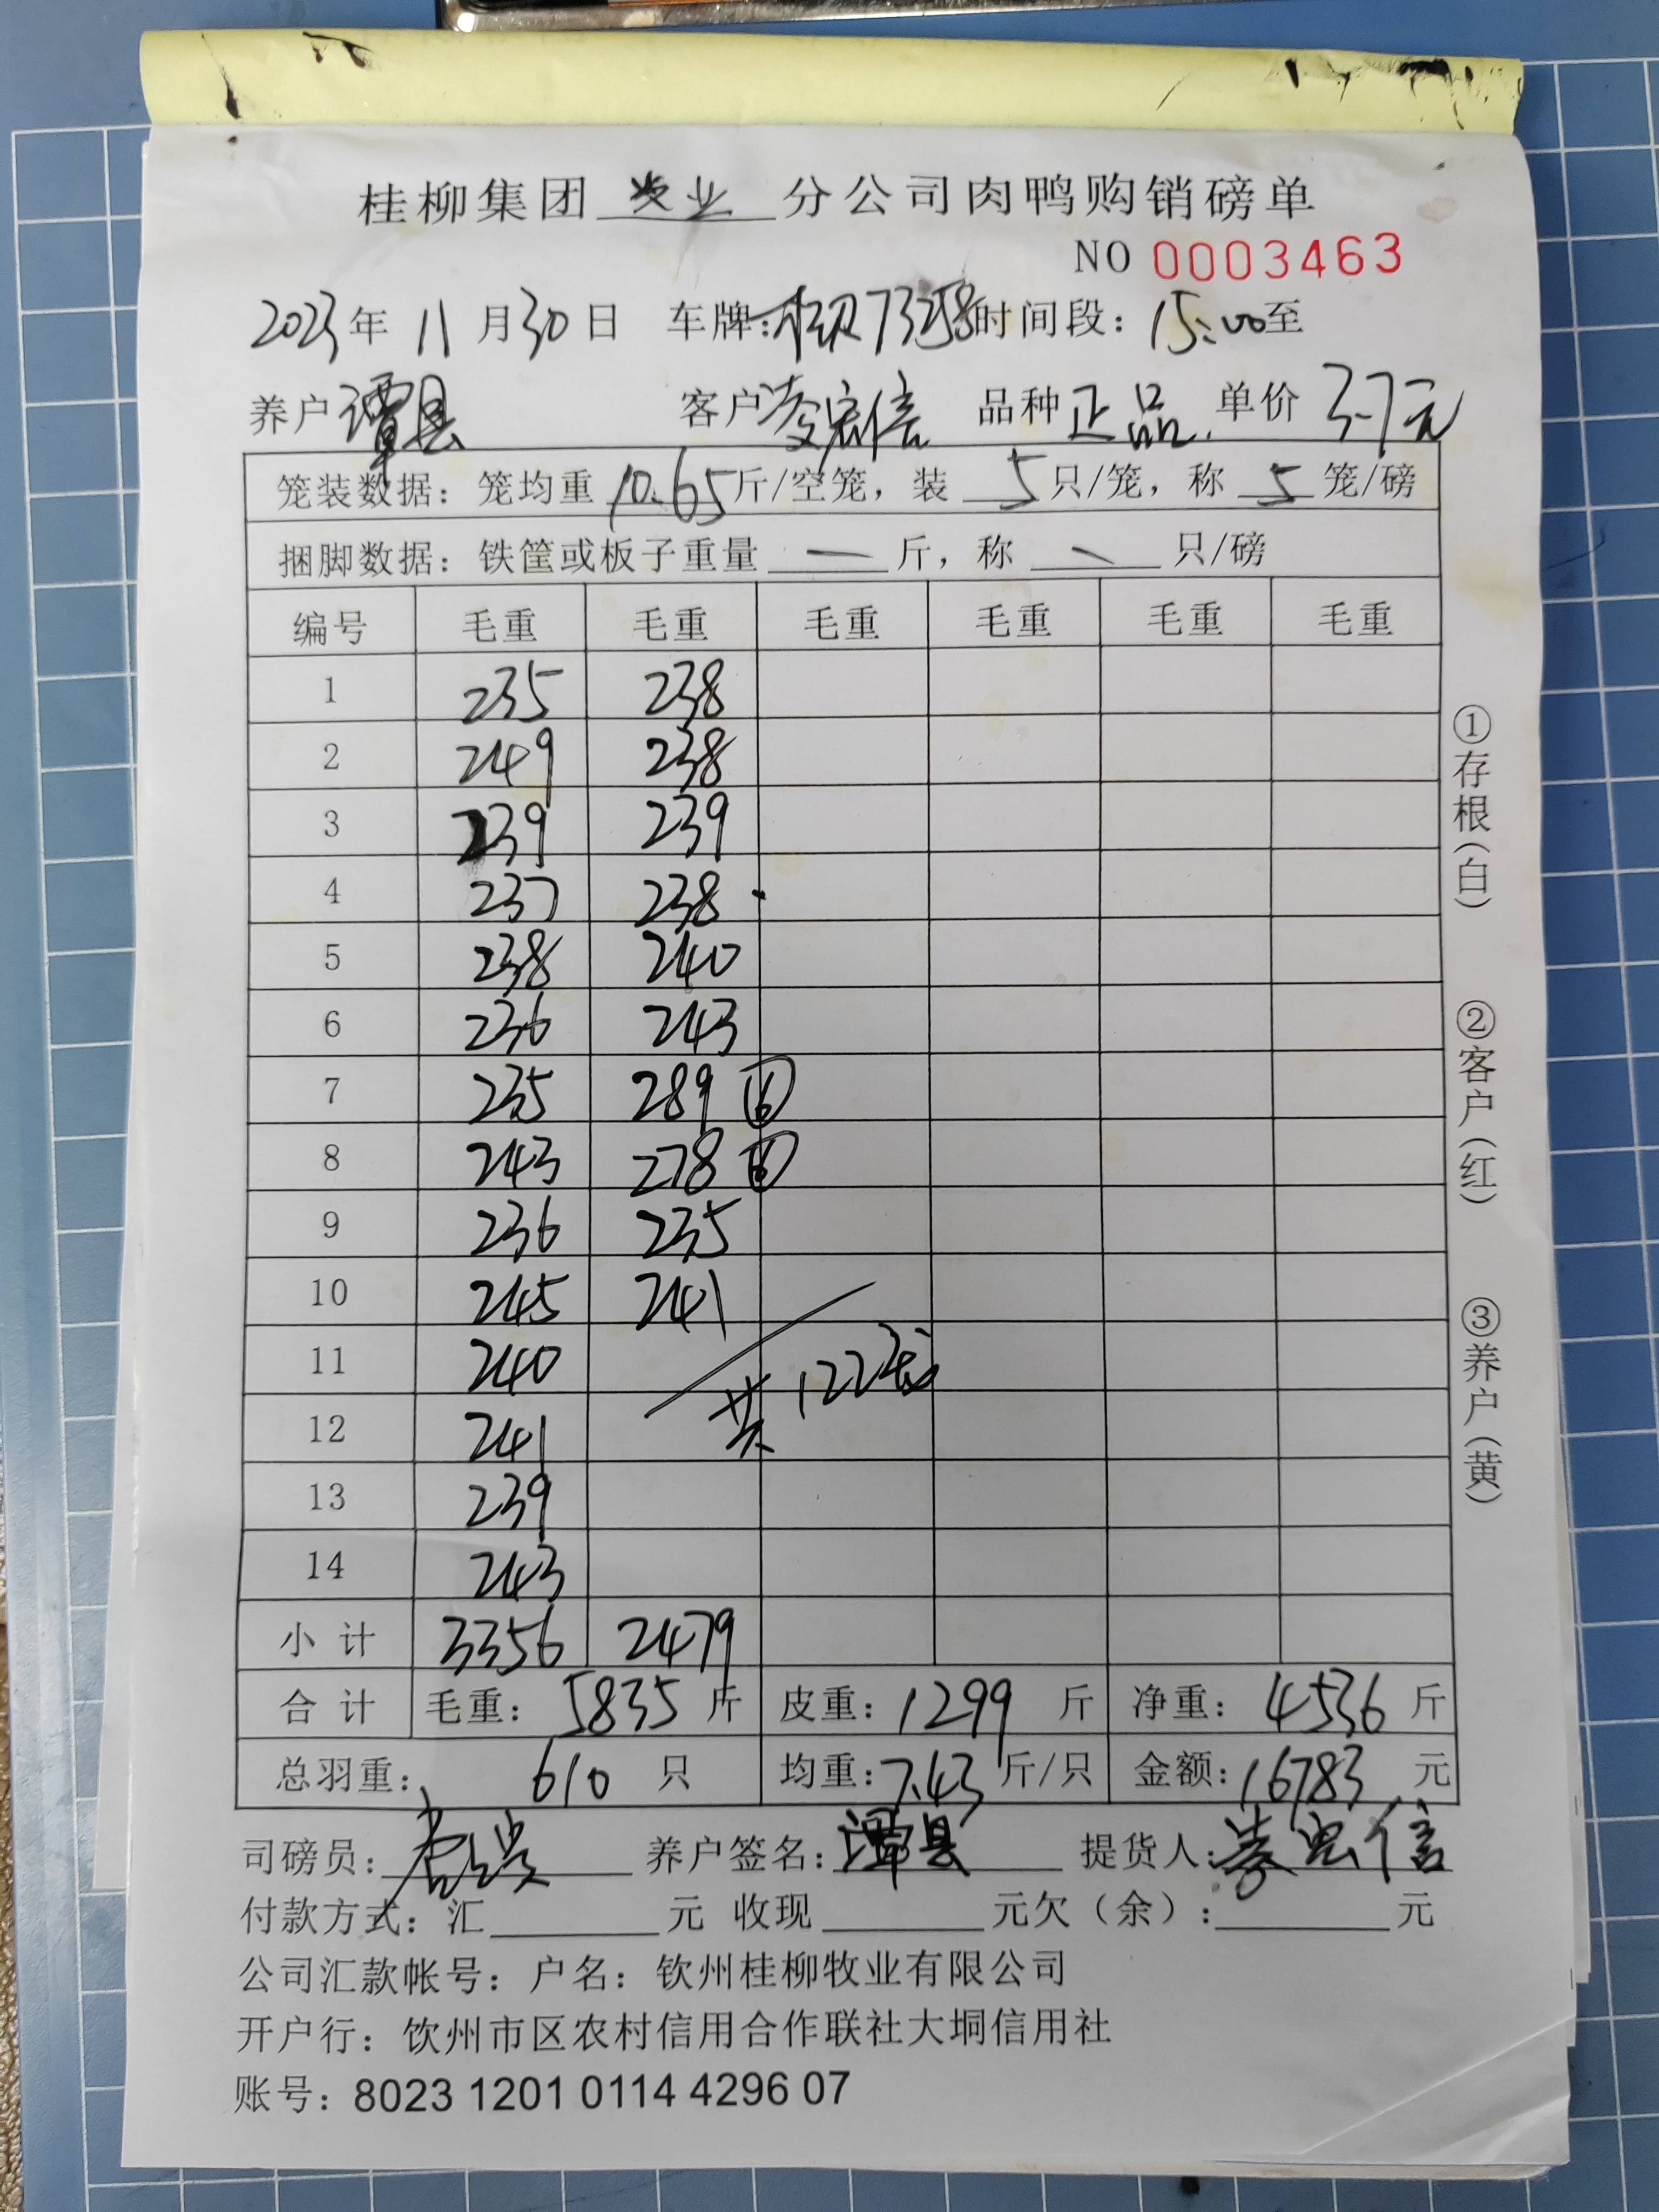 桂柳集团 农业 分公司肉鸭购销磅单
NO 0003463
2023年 11月30日 车牌: 73258 时间段: 15:00至
养户 谭县 客户 凌宏信 品种 正品. 单价 3.7元
笼装数据: 笼均重 10.65 斤/空笼, 装 5 只/笼, 称 5 笼/磅
捆脚数据: 铁筐或板子重量 — 斤, 称 — 只/磅
编号 毛重 毛重 毛重 毛重 毛重 毛重
1 235 238
2 249 238
3 239 239
4 237 238
5 238 240
6 236 243
7 235 289 ⑥
8 243 278 ⑥
9 236 235
10 245 241
11 240
共122笼
12 241
13 239
14 243
小计 3356 2479
合计 毛重: 5835 斤 皮重: 1299 斤 净重: 4536 斤
总羽重: 610 只 均重: 7.43 斤/只 金额: 16783 元
司磅员: 养户签名: 谭县 提货人: 信
付款方式: 汇 元 收现 元欠(余): 元
公司汇款帐号: 户名: 钦州桂柳牧业有限公司
开户行: 钦州市区农村信用合作联社大垌信用社
账号: 8023 1201 0114 4296 07
①存根(白) ②客户(红) ③养户(黄)